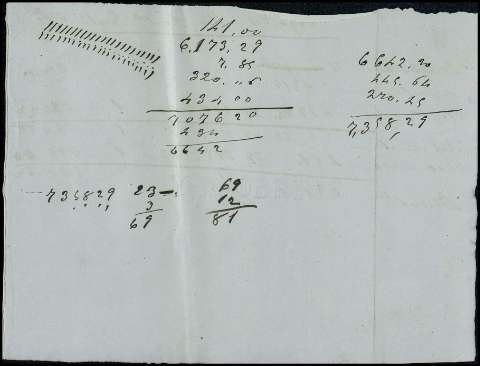 141,00
6,173,29
7.85
320.,,6
434 00
7 0 7 6 2 0
434
6642
6642,20
445.64
270.45
7,358,29
735829
23—.
3
69
69
12
81